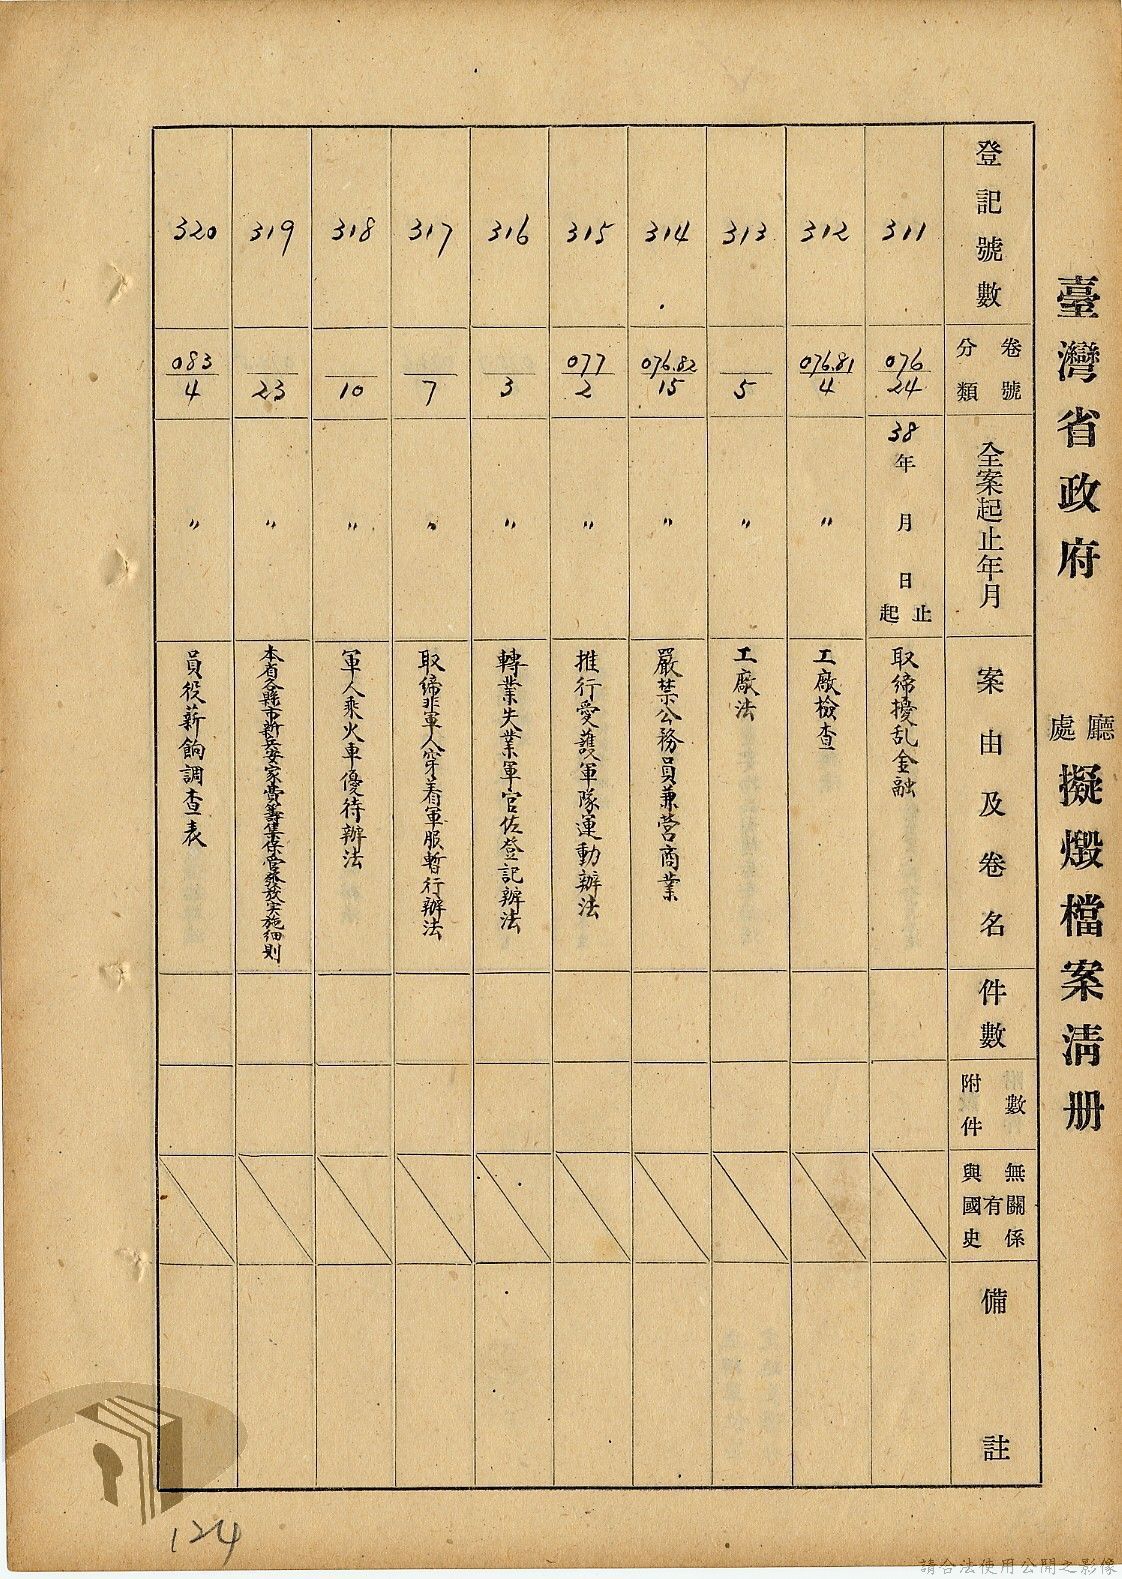 臺灣省政府 廳處 擬燬檔案清册
登記號數
卷號 分類
全案起止年月
案由及卷名
件數
附件 附件數
與國史 有 無關係
備註
311
076
24
38年 月 日 起 止
取締擾乱金融
312
076.81
4
〃
工廠檢查
313
5
〃
工廠法
314
076.82
15
〃
嚴禁公務員兼營商業
315
077
2
〃
推行愛護軍隊運動辦法
316
3
〃
轉業失業軍官佐登記辦法
317
7
〃
取締非軍人穿着軍服暫行辦法
318
10
〃
軍人乘火車優待辦法
319
23
〃
本省各縣市新兵安家費籌集保管發放实施细則
320
083
4
〃
員役薪餉調查表
124
請合法使用公開之影像